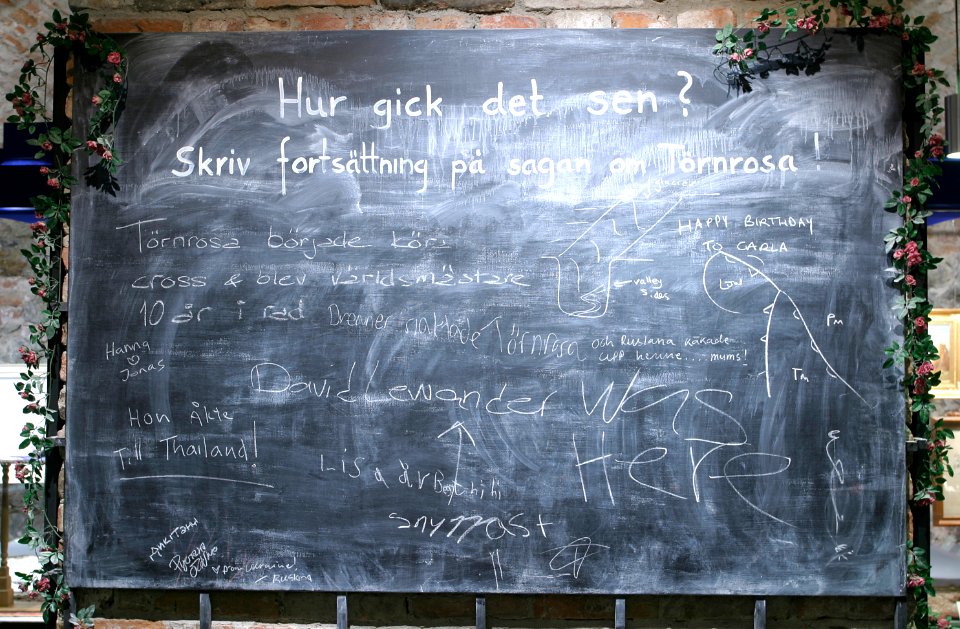 Hur gick det sen?
Skriv fortsättning på sagan om Törnrosa!
Törnrosa började köra
cross & blev världsmästare
10 år i rad
HAPPY BIRTHDAY
TO CARLA
valley
sides
Low
Pm
Tm
Hanna
Jonas
Törnrosa
och Ruslana käkade
upp henne....mums!
David Lewander Was
Here
Hon Åkte
Till Thailand!
Lisa är Bäst hihi
from Ukraine!